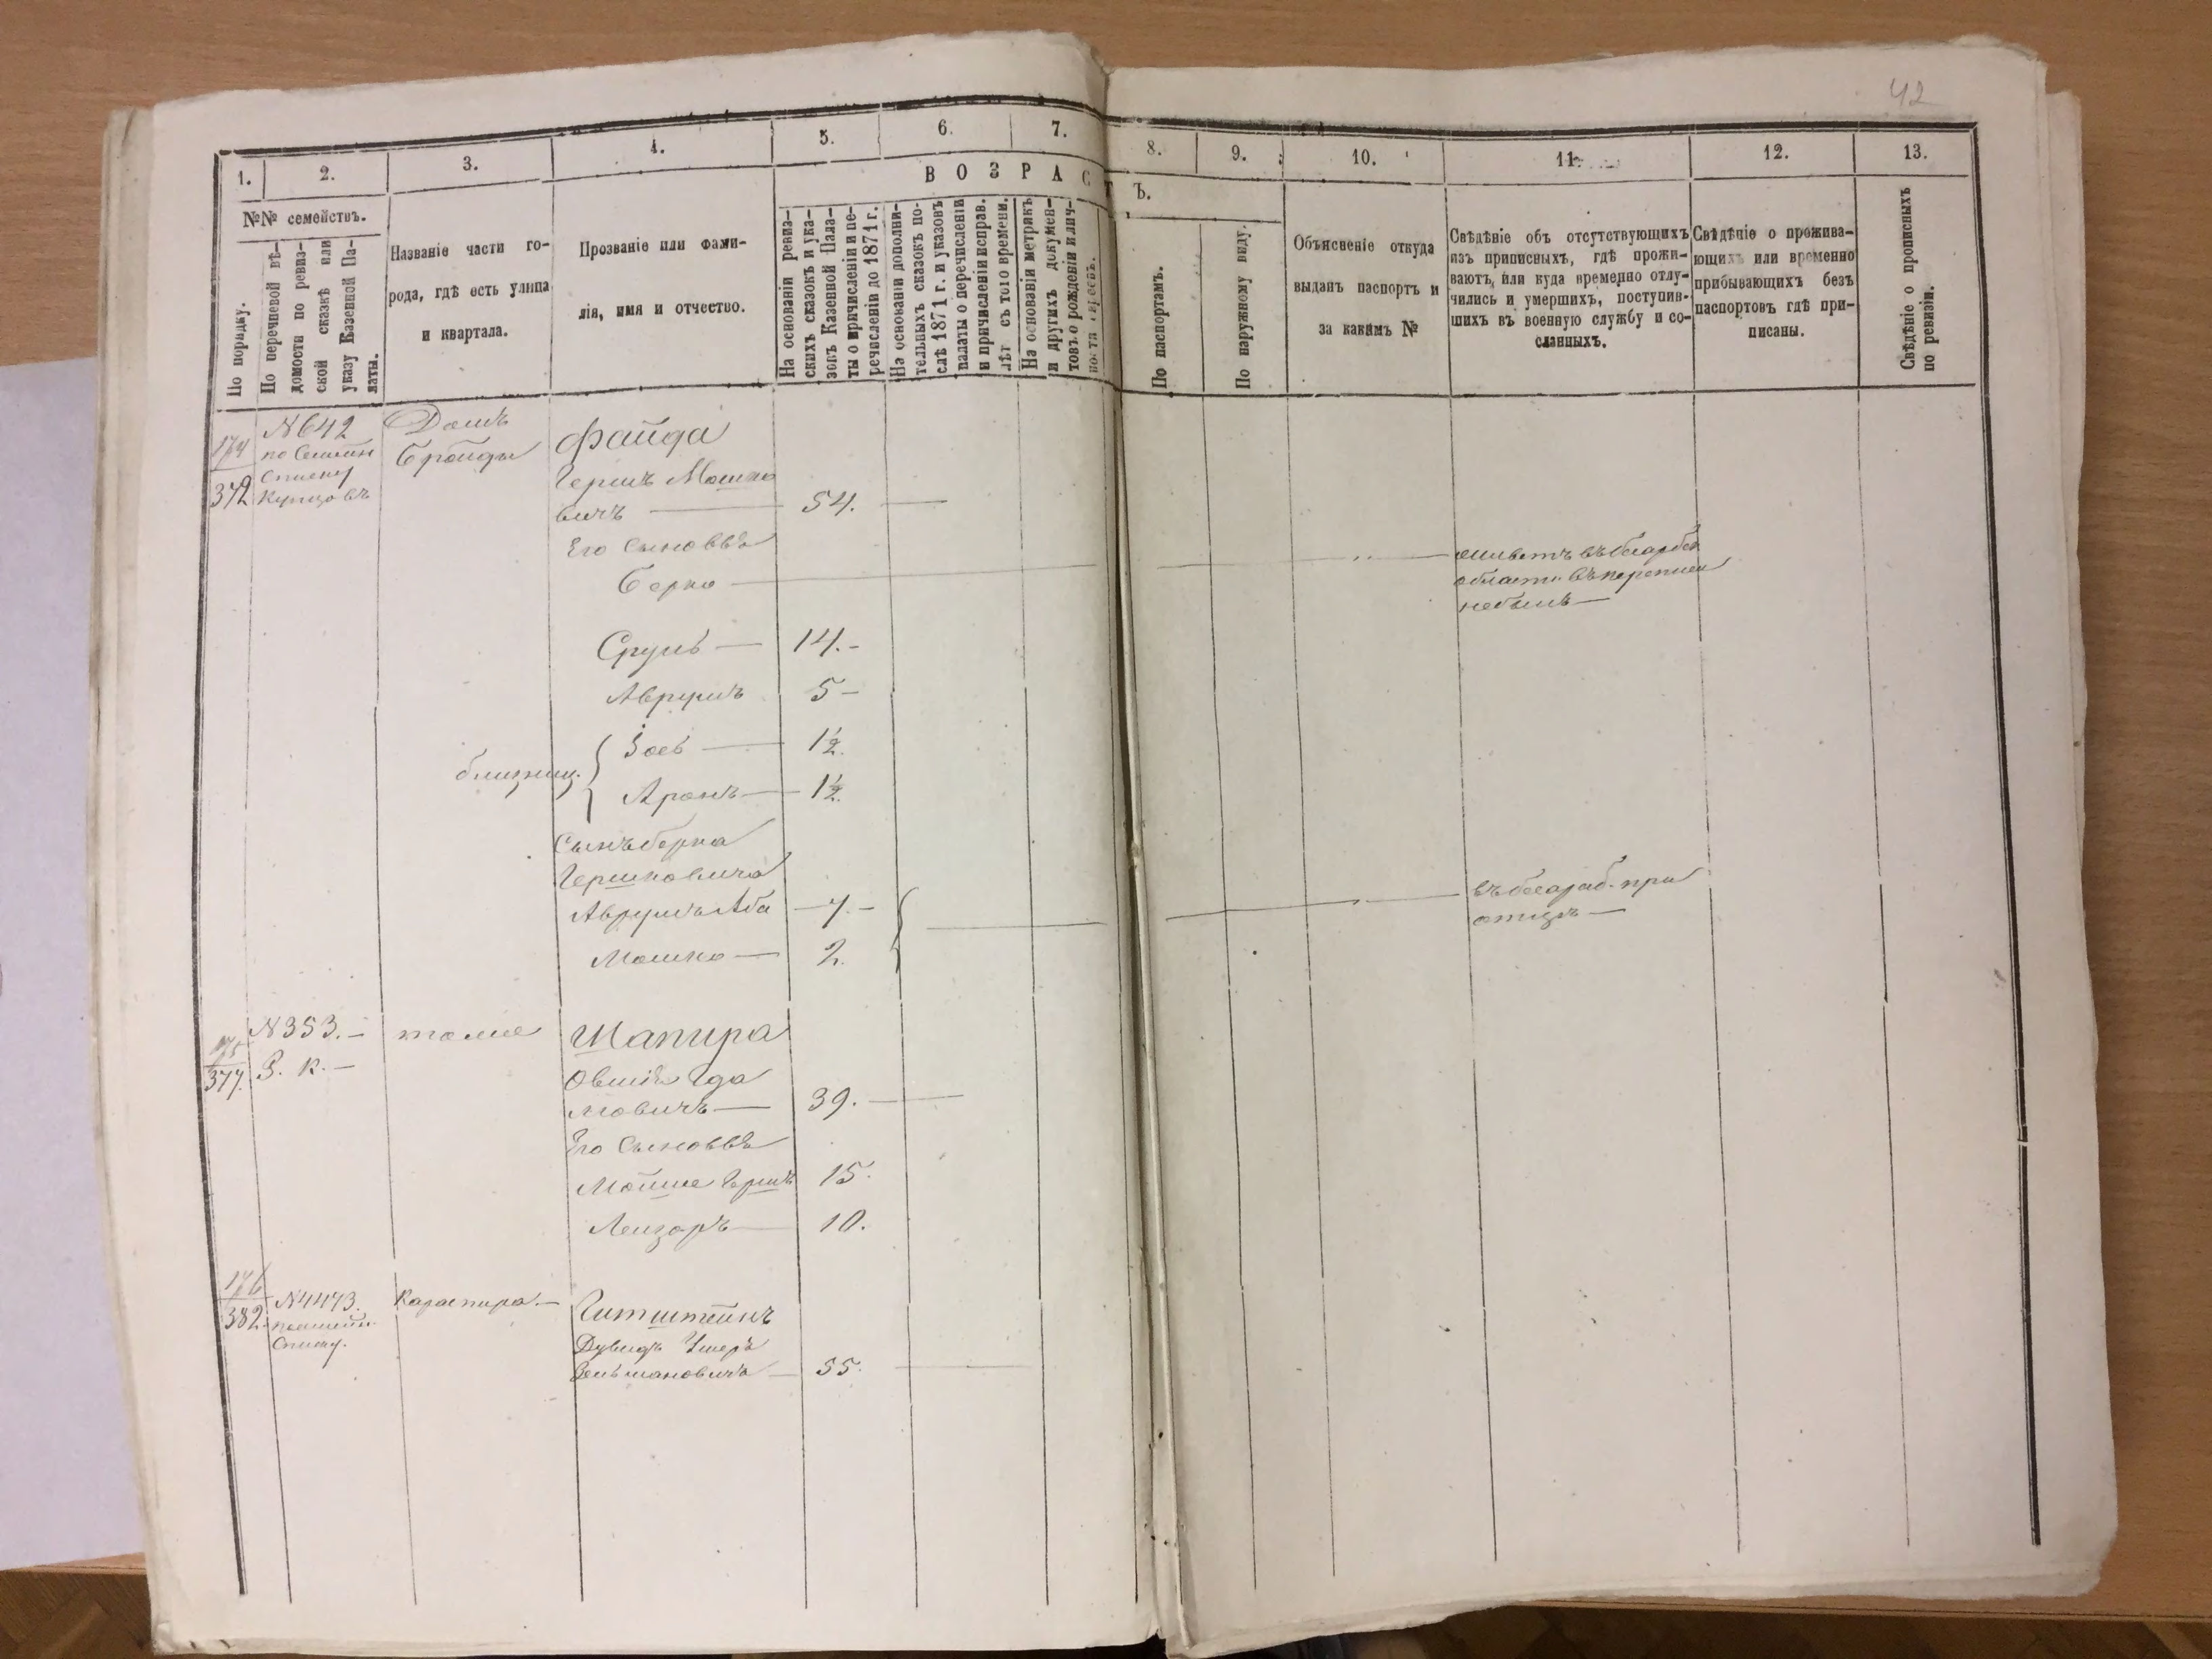 42
1.
2.
3.
4.
5.
6.
7.
8.
9.
10.
11.
12.
13.
№№ семействъ.
ВОЗРАСТЪ.
По порядку.
По перечневой вѣ-
домости по ревиз-
ской сказкѣ или
указу Казенной Па-
латы.
Названіе части го-
рода, гдѣ есть улица
и квартала.
Прозваніе или фами-
лія, имя и отчество.
На основаніи ревиз-
скихъ сказокъ и ука-
зовъ Казенной Пала-
ты о причисленіи и пе-
речисленіи до 1871 г.
На основаніи дополни-
тельныхъ сказокъ по-
слѣ 1871 г. и указовъ
палаты о перечисленіи
и причисленіи исправ.
лѣт съ того времени.
На основаніи метрикъ
и другихъ докумен-
товъ о рожденіи и лич-
По паспортамъ.
По наружному виду.
Объясненіе откуда
выданъ паспортъ и
за какимъ №
Свѣдѣніе объ отсутствующихъ
изъ приписныхъ, гдѣ прожи-
ваютъ, или куда временно отлу-
чились и умершихъ, поступив-
шихъ въ военную службу и со-
сланныхъ.
Свѣдѣніе о прожива-
ющихъ или временно
прибывающихъ безъ
паспортовъ гдѣ при-
писаны.
Свѣдѣніе о прописныхъ
по ревизіи.
174
372
№642
по
Списку
Купцовъ
Домъ
Бройды
Файда
Гершъ Мошко
вичъ — 54. —
Его Сыновья
Берко — живетъ въ Бесарабск
области въ переписи
небылъ —
Срулъ — 14. -
Аврумъ 5 —
близнец. { Зось — 1½.
Аронъ — 1½.
Сынъ Берка
Гершковича
Аврумъ Аба — 7. —
Мошко — 2.
въ бесараб. при
отцѣ —
175
377.
№353. —
Р. К. —
тоже
Шапира
Овшій Гда
ловичъ — 39. —
Его Сыновья
Мойше Гершъ 15.
Лейзоръ — 10.
176
382.
№4473.
Списку.
Карантира. —
Гитштейнъ
Дувидъ Ушеръ
Зельмановичъ — 55.